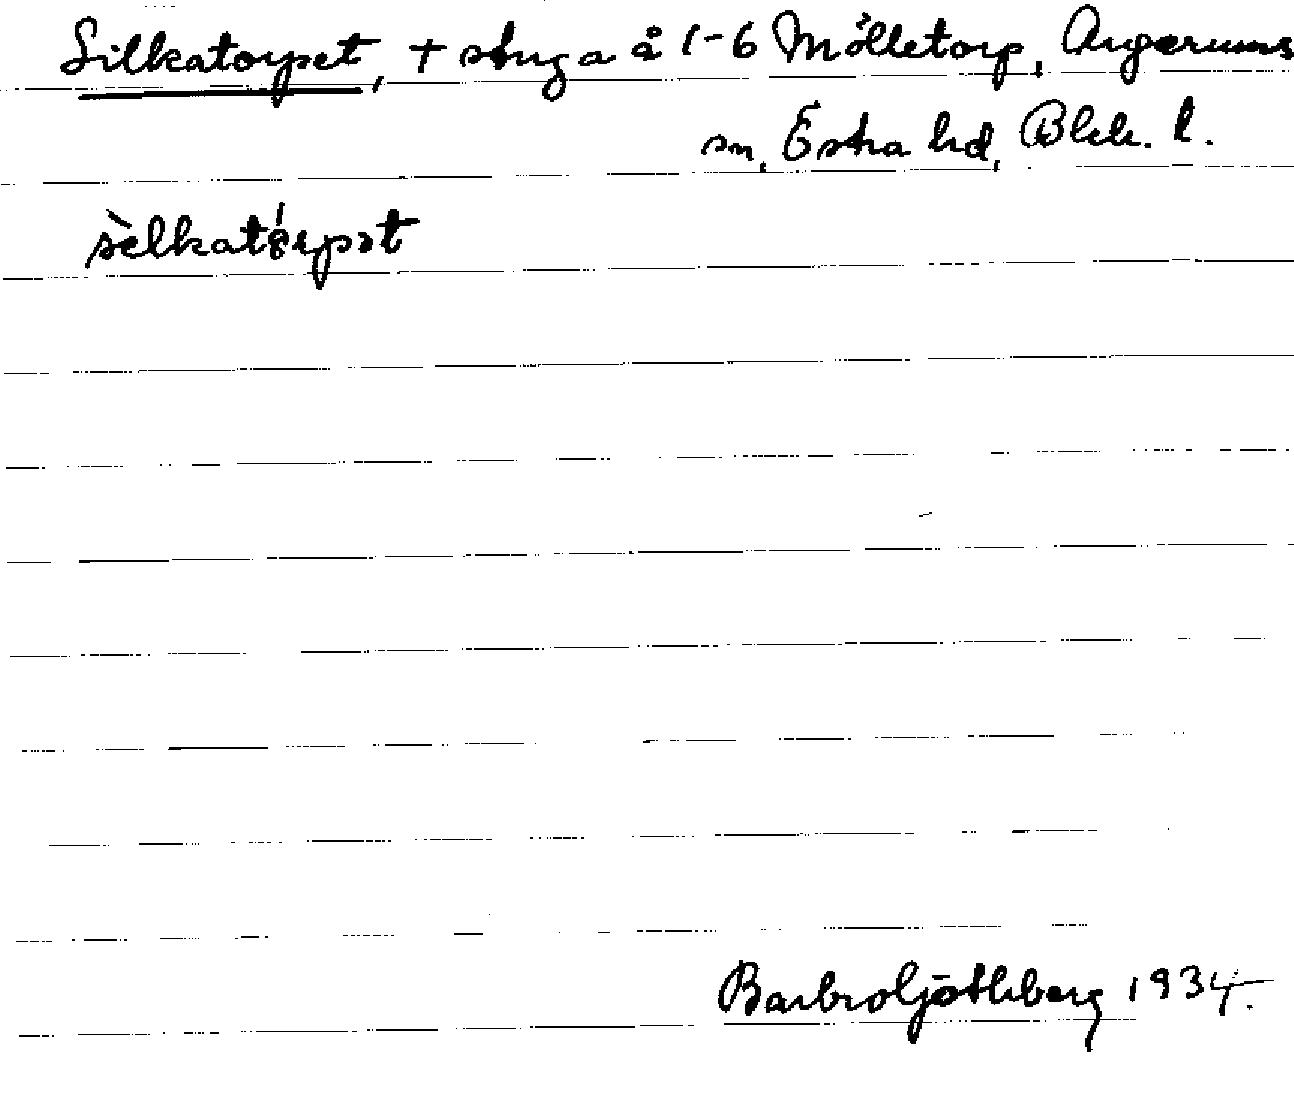 Silkatorpet, + stuga å 1-6 Mölletorp, Augerums
sn, Östra hd, Blek. l.
sèlkatǿrpət
Barbro Göthberg 1934.